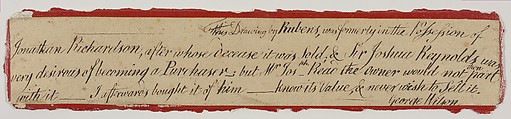 This Drawing by Rubens, was formerly in the Possession of
Jonathan Richardson, after whose decease it was Sold, & Sir Joshua Reynolds was
very desirous of becoming a Purchaser but Mr Josph the owner would not then part
with it I afterwards bought it of him know its Value, & never wish to Sell it.
George Wilson.